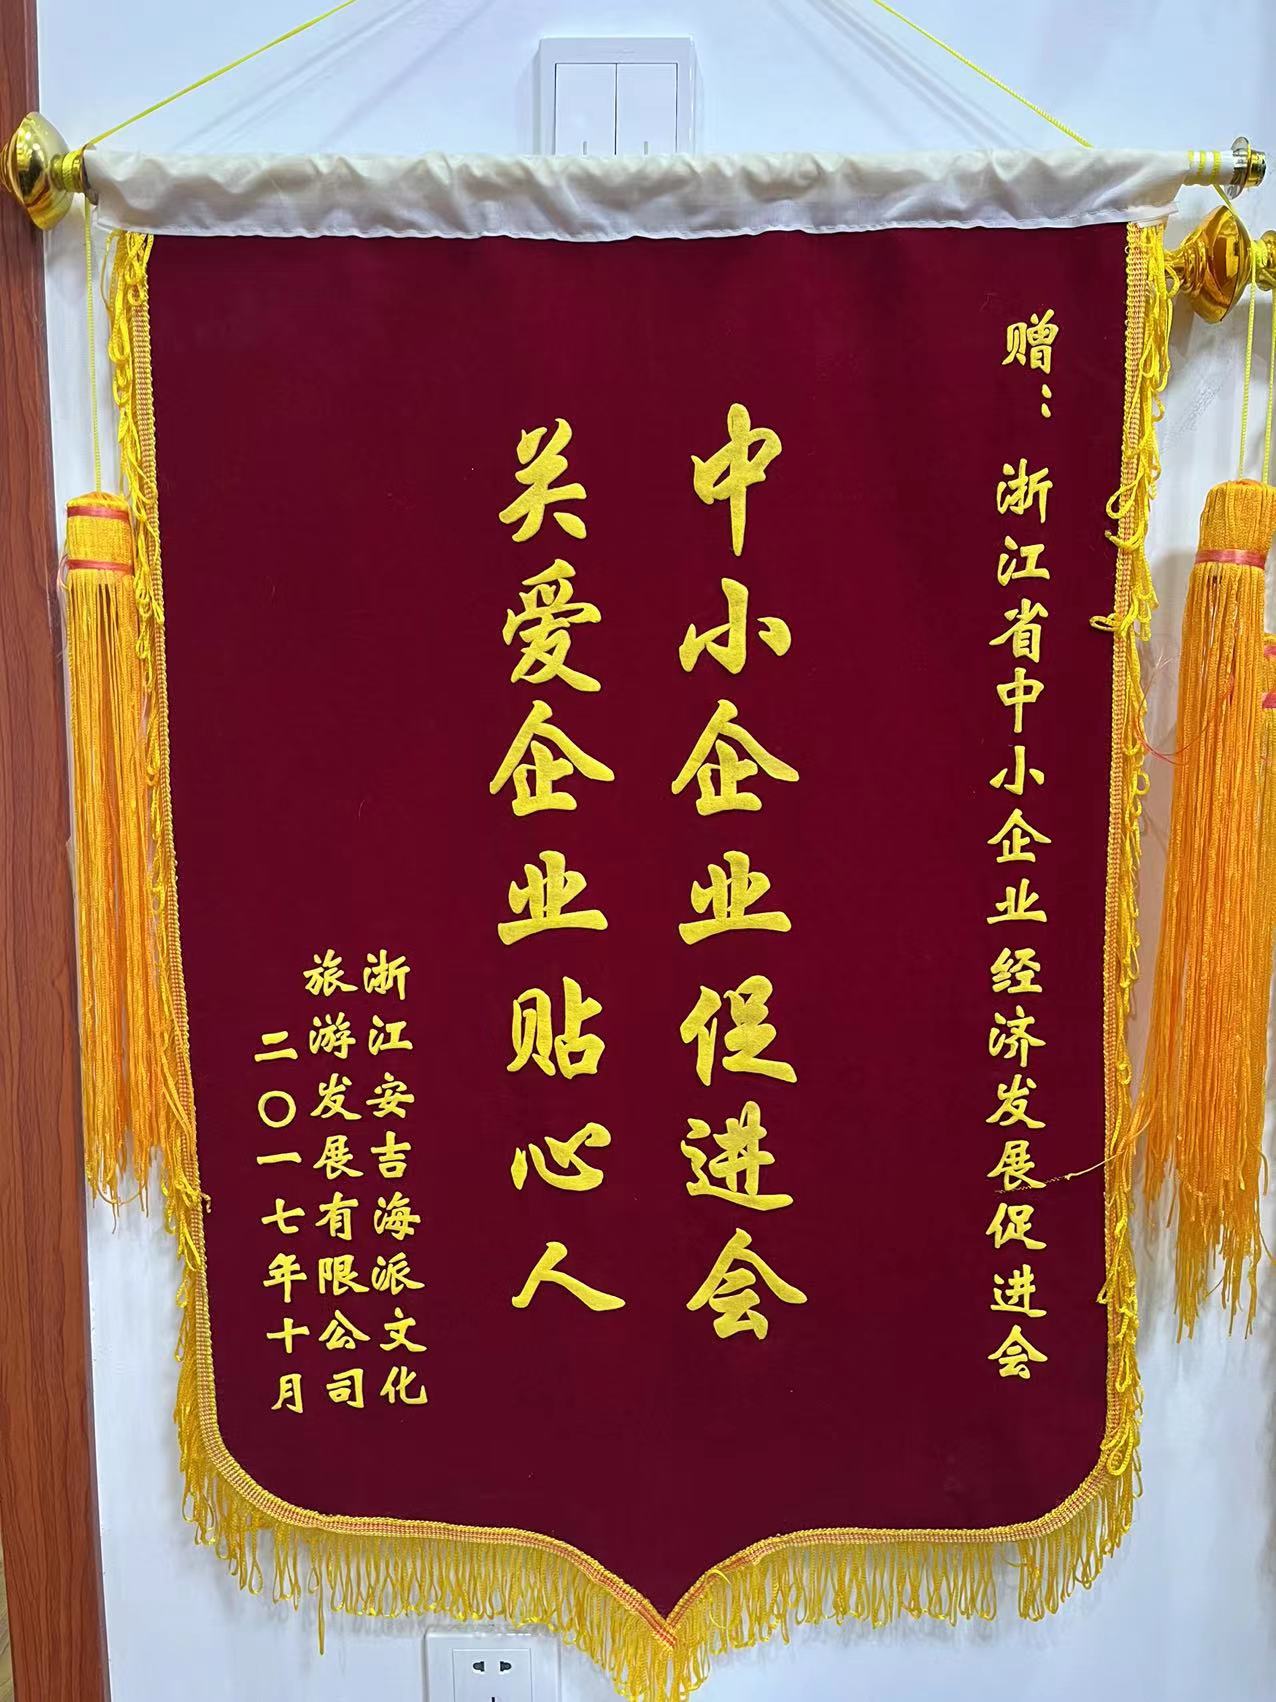 赠：浙江省中小企业经济发展促进会
中小企业促进会
关爱企业贴心人
浙江安吉海派文化
旅游发展有限公司
二〇一七年十月